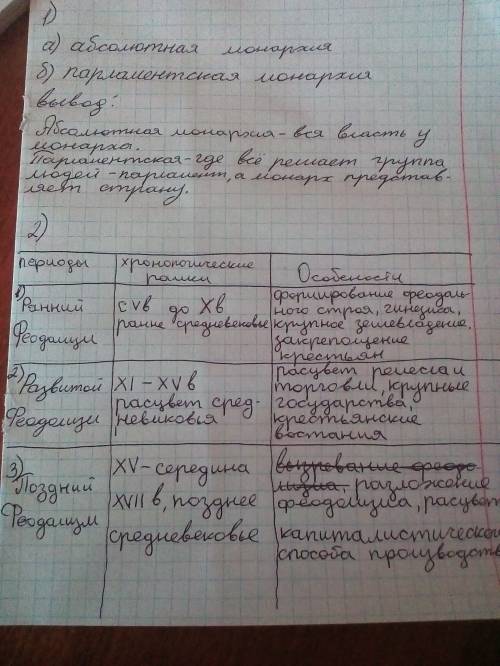 1)
а) абсолютная монархия
б) парламентская монархия
вывод:
Абсолютная монархия - вся власть у
монарха.
Парламентская - где всё решает группа
людей - парламент, а монарх представ-
ляет страну.
2)
периоды
хронологические
рамки
Особености
1) Ранний
Феодализм
с Vв до Xв
ранне средневековье
формирование феодаль-
ного строя,
крупное землевладение,
закрепощение
крестьян
2) Развитой
Феодализм
XI - XVв
расцвет сред-
невиковья
расцвет ремесла и
торговли, крупные
государства,
крестьянские
востания
3) Поздний
Феодализм
XV - середина
XVII в, позднее
средневековье
разложение
феодолизма, расцвет
капиталистического
способа производств